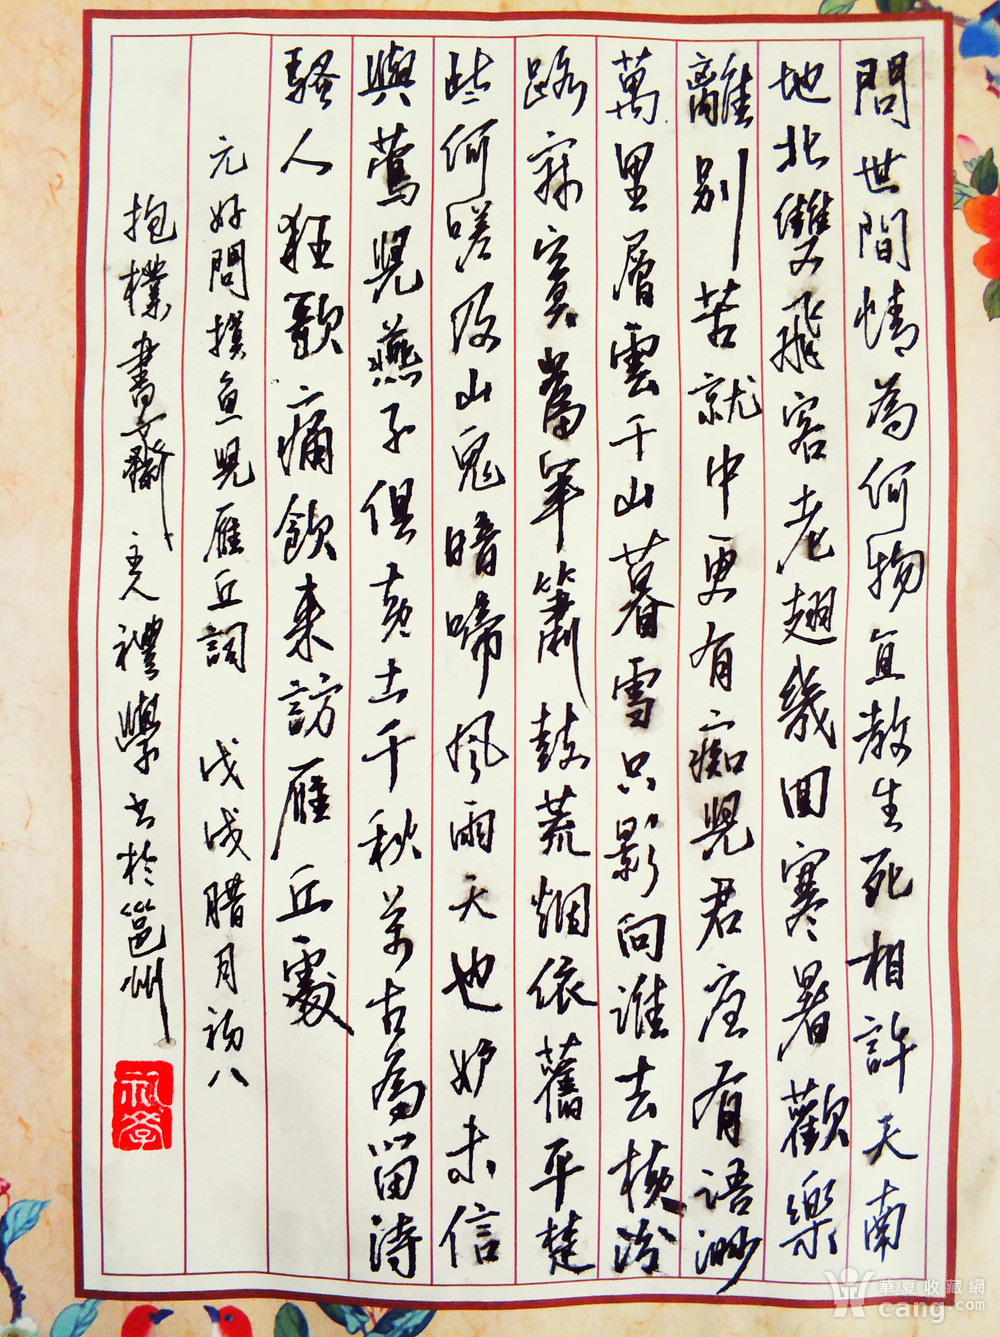 問世間情為何物直教生死相許天南
地北雙飛客老翅幾回寒暑歡樂
離別苦就中更有痴兒君應有語渺
萬里層雲千山暮雪只影向誰去橫汾
路寂寞當年簫鼓荒烟依舊平楚
些何嗟及山鬼暗啼風雨天也妒未信
與鶯兒燕子俱黃土千秋萬古為留待
騷人狂歌痛飲來訪雁丘處
元好問摸魚兒雁丘詞 戊戌腊月初八
抱樸書齋主人禮學书於邕州
華夏收藏網
cang.com